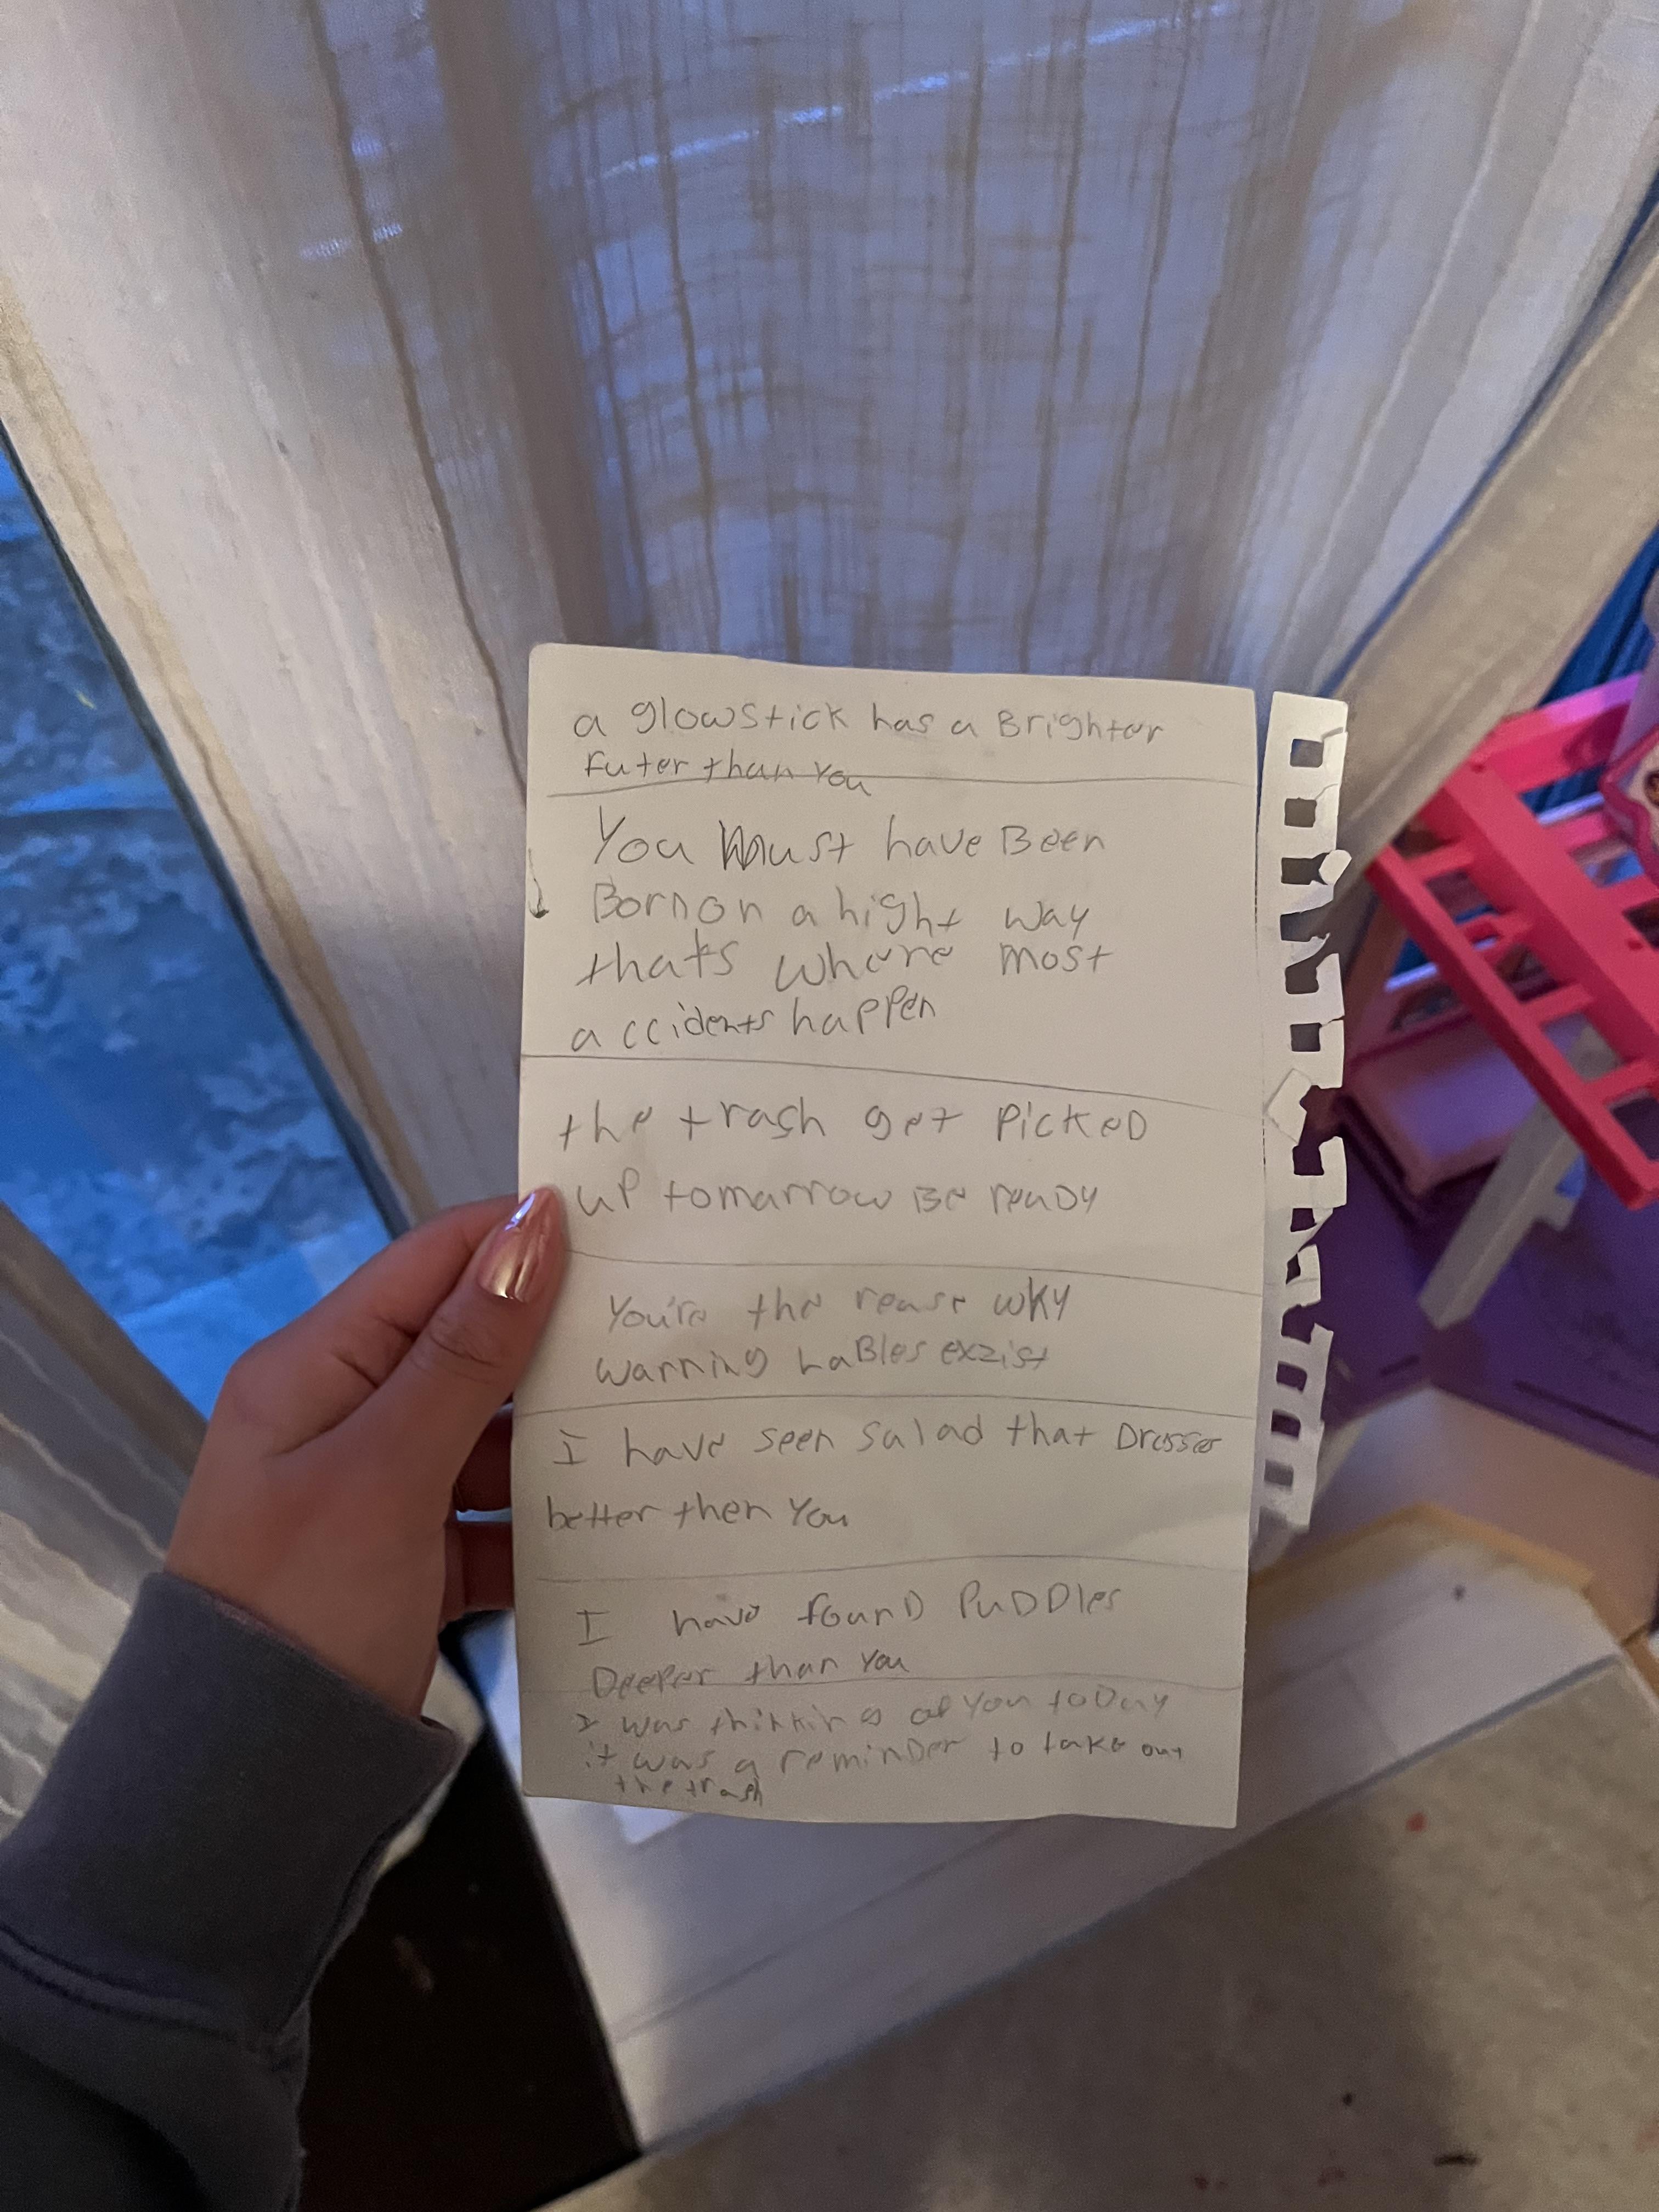 a glowstick has a Brighter
Futer than You
You Must have Been
Born on a hight way
that's where most
accidents happen
the trash get Picked
up tomarrow Be ready
You're the reasr wKy
warning LaBles exzist
I have seen salad that Dresses
better then You
I have founD PuDDles
Deeper than You
I was thinking of You toDay
it was a reminDer to take out
the trash